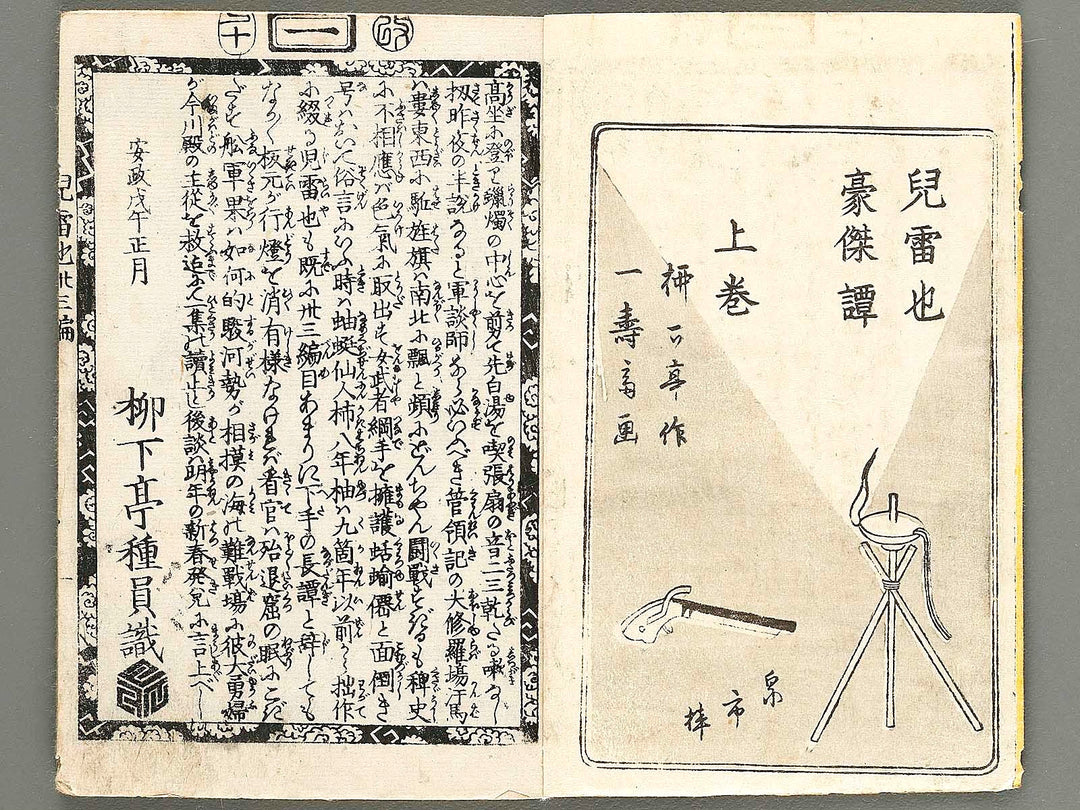 兒雷也
豪傑譚
上巻
柳下亭作
一壽斎画
泉市梓
改
一
二十
高坐に登り蠟燭の中心を剪て先白湯を喫張扇の音二三乾たる咳なし
扨昨夜の半説なると軍談師なら必いふべき管領記の大修羅場汗馬
ハ東西に駈旌旗ハ南北に飄と頻にどんちやん闘戦を
に不相應バ色氣に取出す女武者綱手を擁護蛞蝓僊と面倒き
号ハおいて俗言にいふ時ハ蚰蜒仙人柿八年柚ハ九箇年以前から拙作
に綴る児雷也も既に卅三編目あまりに下手の長譚と辞しても
なかく板元が行燈を消有様なけれバ看官ハ殆退窟の眠にこ
だも舩軍果ハ如何的駿河勢が相摸の海の難戦場に彼大勇婦
が今川殿の主従を救迄を集の讀止と後談ハ明年の新春発兌に言上べし
安政戊午正月
柳下亭種員識
兒雷也卅三編